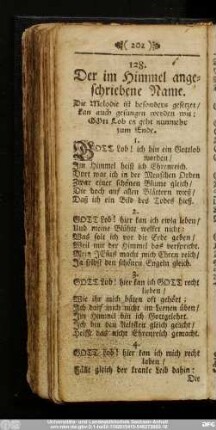 ( 202 )
128.
Der im Himmel ange-
schriebene Name.
Die Melodie ist besonders gesetzet/
kan auch gesungen werden wie:
GOtt Lob es geht nunmehr
zum Ende.
1.
GOTT Lob! ich bin ein
worden/
Im Himmel heiß ich Ehrenreich.
Dort war ich in der Menschen Orden
Zwar einer schönen Blume gleich/
Die doch auf allen Blättern weiß/
Daß ich ein Bild des Todes hieß.
2.
GOTT Lob! hier kan ich ewig leben/
Und meine Blüthe welket nicht:
Was solt ich vor die Erde geben/
Weil mir der Himmel das verspricht.
Mein JEsus macht mich Ehren reich/
Ja selbst den schönsten Engeln gleich.
3.
GOTT Lob! hier kan ich GOTT recht
lieben/
Wie ihr mich öfters oft gehört:
Ich darf mich nicht im lernen üben/
Im Himmel bin ich Hochgelehrt.
Ich bin den Aeltsten gleich geacht/
Heist das nicht Ehrenreich gemacht.
4.
GOTT Lob! hier kan ich mich recht
laben/
Fällt gleich der kranke Leib dahin:
Die